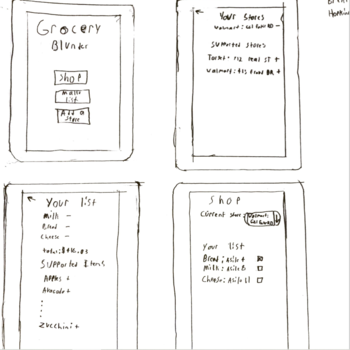 Grocery
Blunder
Shop
Make
list
Add a
Store
Your Stores
Walmart:
Supported Stores
Target: 712 real ST +
Walmart: +
Your list
Milk -
Bread -
Cheese -
Supported Items
Apples +
Avocado +
Zucchini +
Shop
Current Store: Walmart:
Your list
Bread: Aisle 4
Milk: Aisle 8
Cheese: Aisle 11